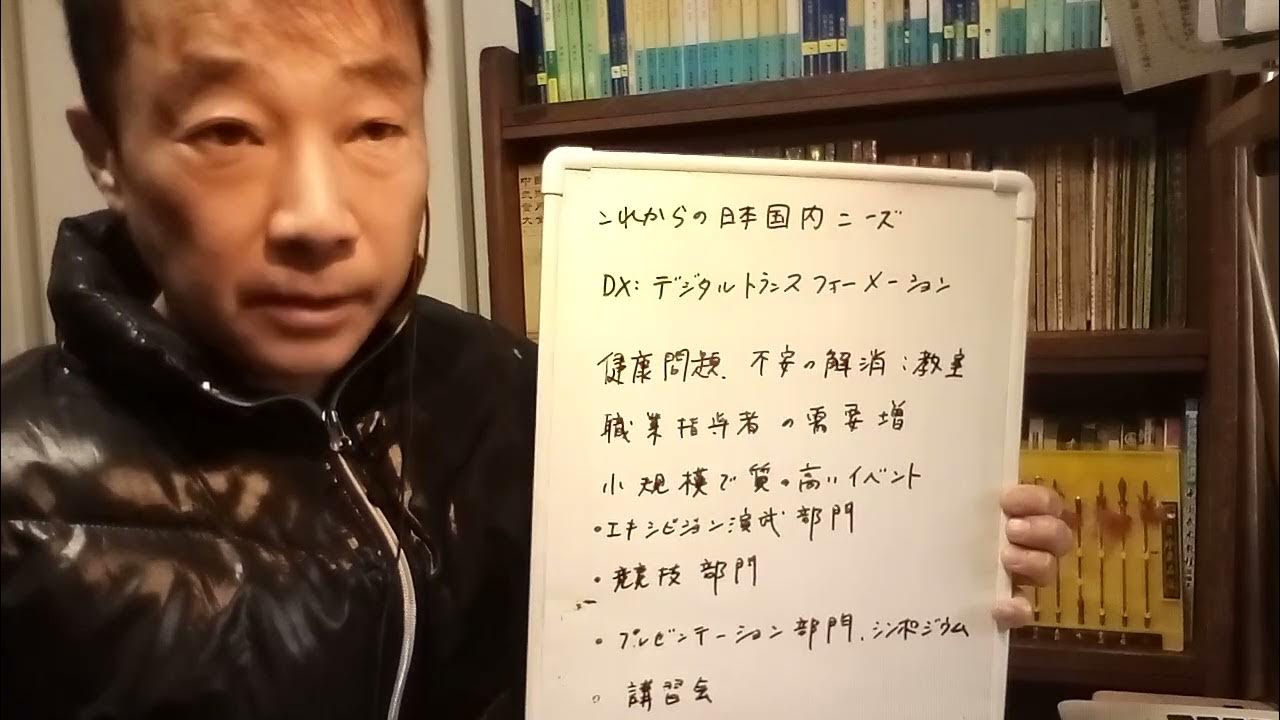 これからの日本国内ニーズ
DX:デジタルトランスフォーメーション
健康問題、不安の解消:教室
職業指導者の需要増
小規模で質の高いイベント
・エキシビジョン演武部門
・競技部門
・プレゼンテーション部門、シンポジウム
・講習会